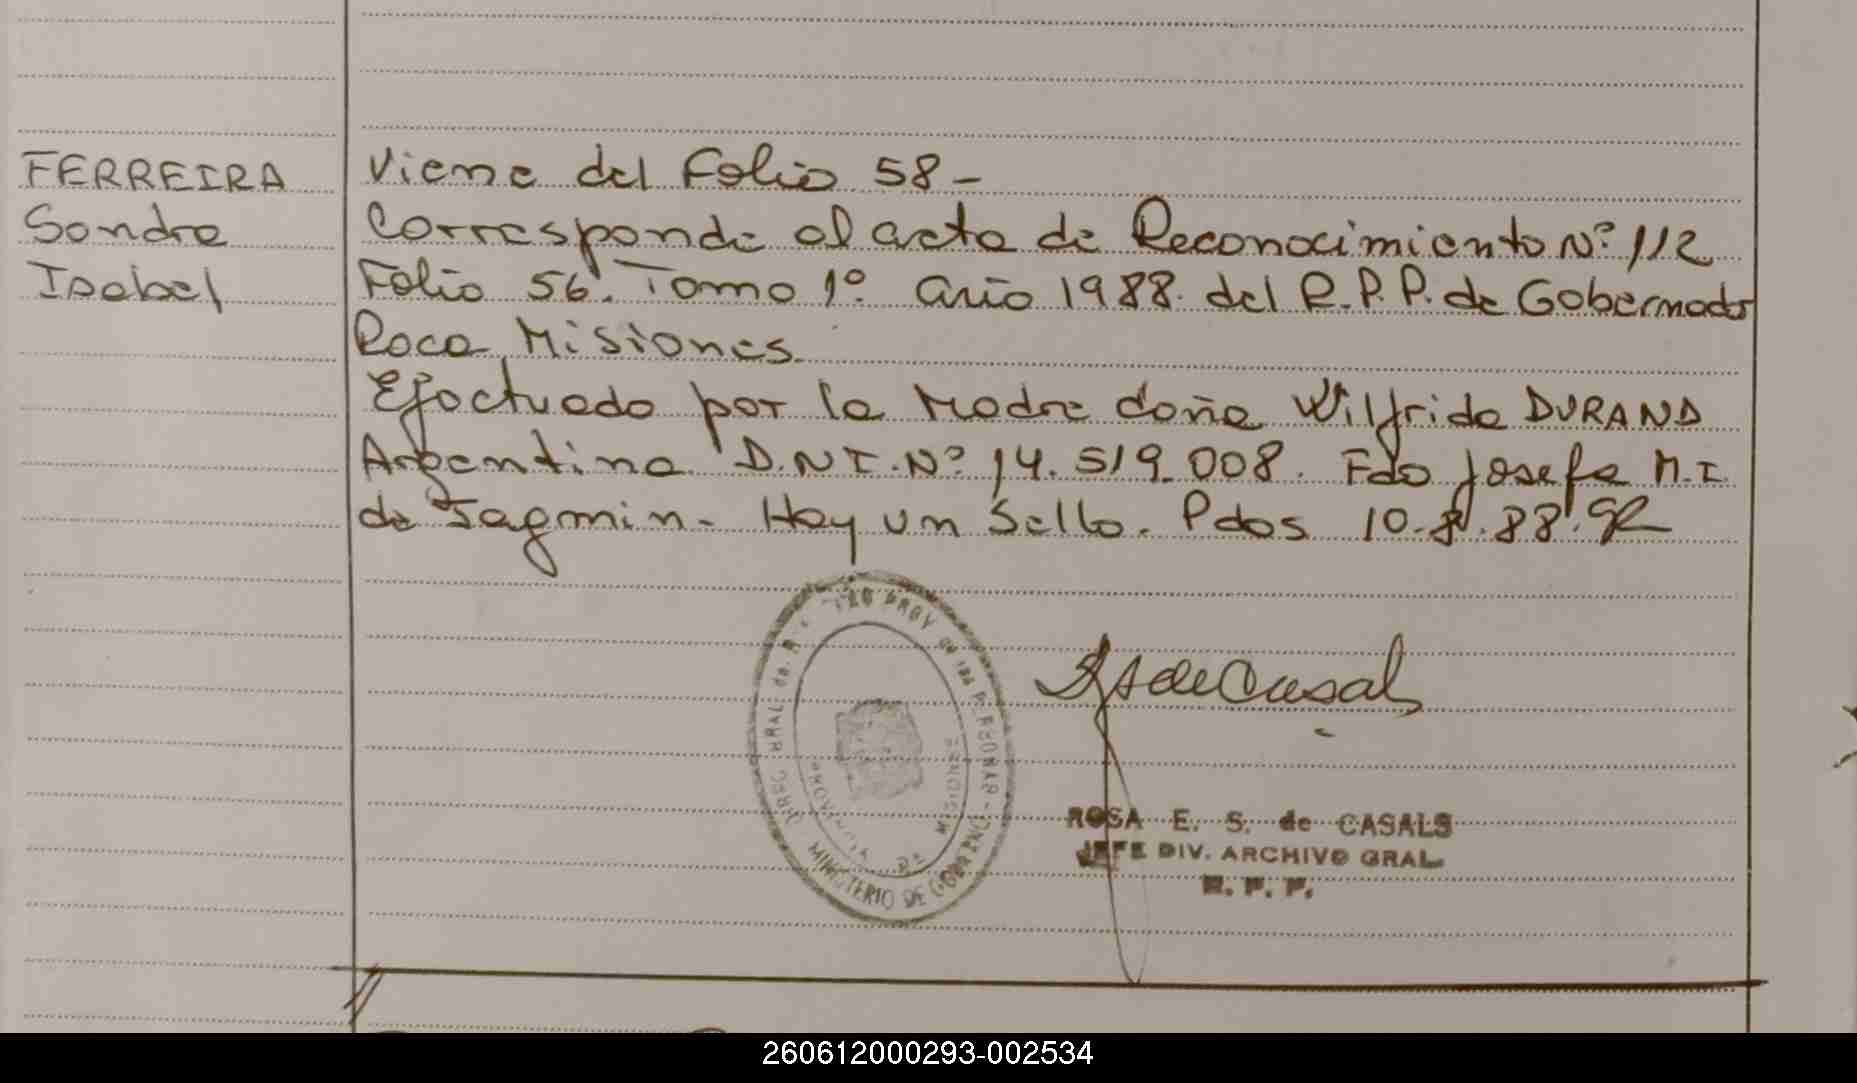 FERREIRA
Sandra
Isabel
Viene del Folio 58-
Corresponde al acta de Reconocimiento Nº 112
Folio 56. Tomo 1º. año 1988. del R.P.P. de Gobernador
Roca, Misiones.
Efectuado por la Madre doña Wilfrida DURAND
Argentina D.N.I. Nº 14.519.008. Fdo Josefa M.I.
de Jagmin.- Hay un Sello. Pdas 10.8.88.
DIREC. GRAL. de. R. PROV de las PERSONAS - MINISTERIO DE GOBIERNO
PROVINCIA DE MISIONES
RS de Casals
ROSA E. S. de CASALS
JEFE DIV. ARCHIVO GRAL.
R. P. P.
260612000293-002534